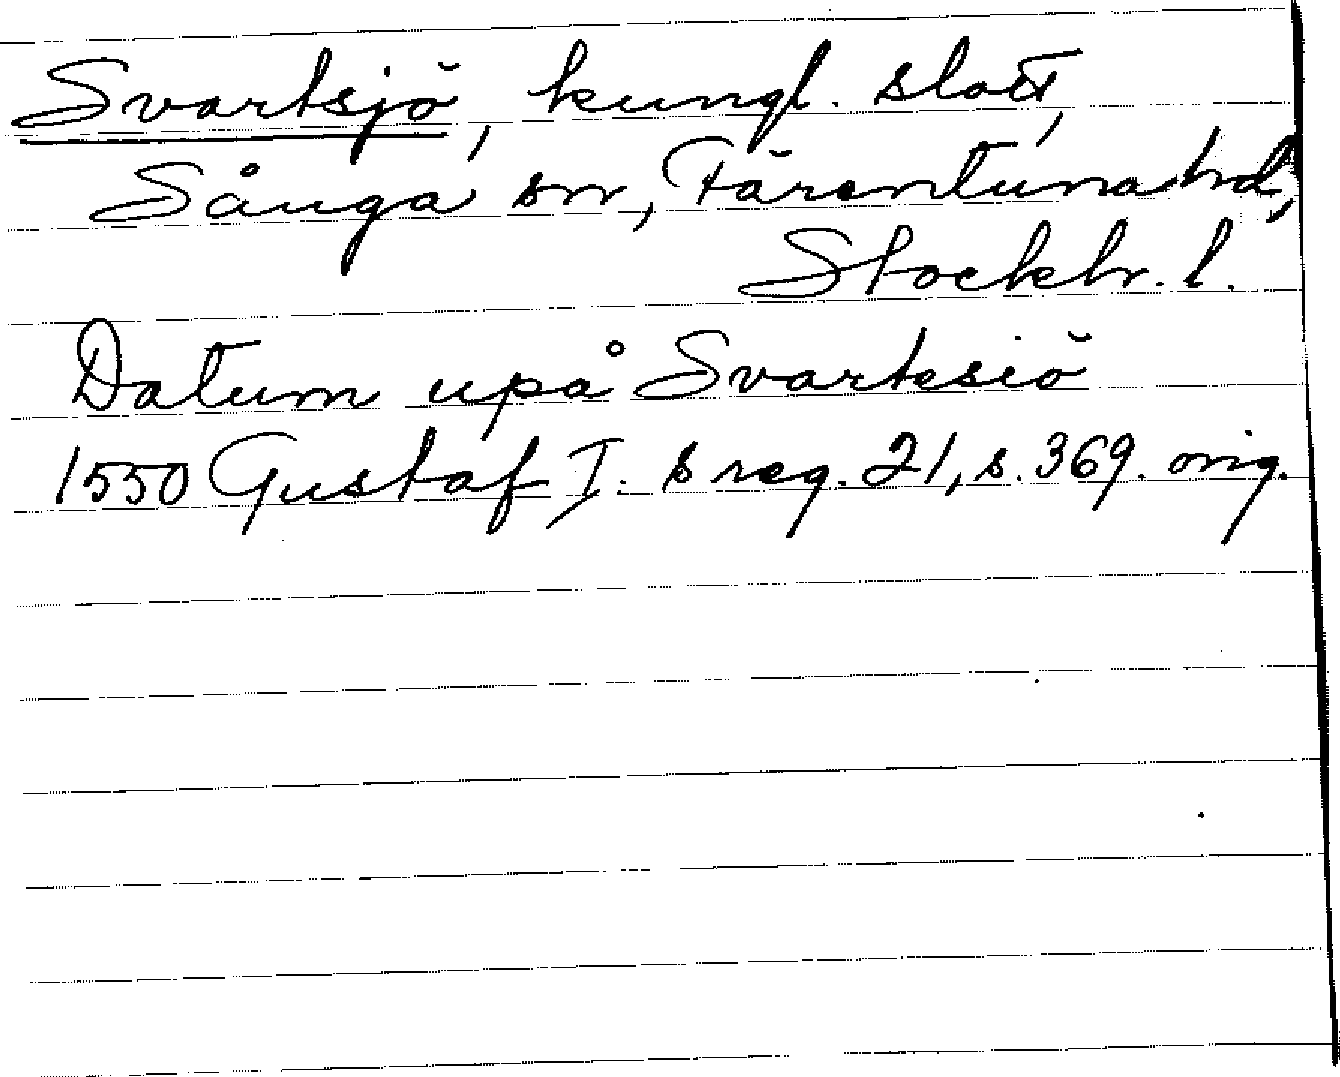 Svartsjö, kungl. slott,
Sånga sn, Färentuna hd,
Stockh. l.
Datum upå Svartesiö
1550 Gustaf I:s reg. 21, s. 369. orig.